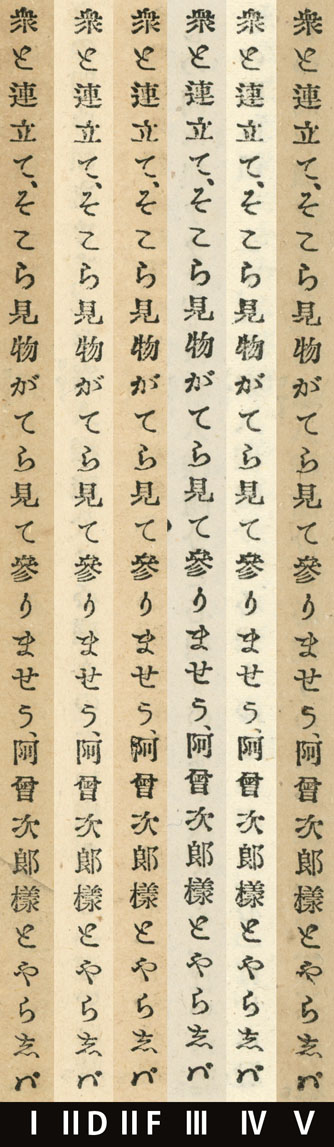 衆と連立て、そこら見物がてら見て參りませう、阿曾次郎樣とやら志バ
衆と連立て、そこら見物がてら見て參りませう、阿曾次郎樣とやら志バ
衆と連立て、そこら見物がてら見て參りませう、阿曾次郎樣とやら志バ
衆と連立て、そこら見物がてら見て參りませう、阿曾次郎樣とやら志バ
衆と連立て、そこら見物がてら見て參りませう、阿曾次郎樣とやら志バ
衆と連立て、そこら見物がてら見て參りませう、阿曾次郎樣とやら志バ
I IID IIF III IV V